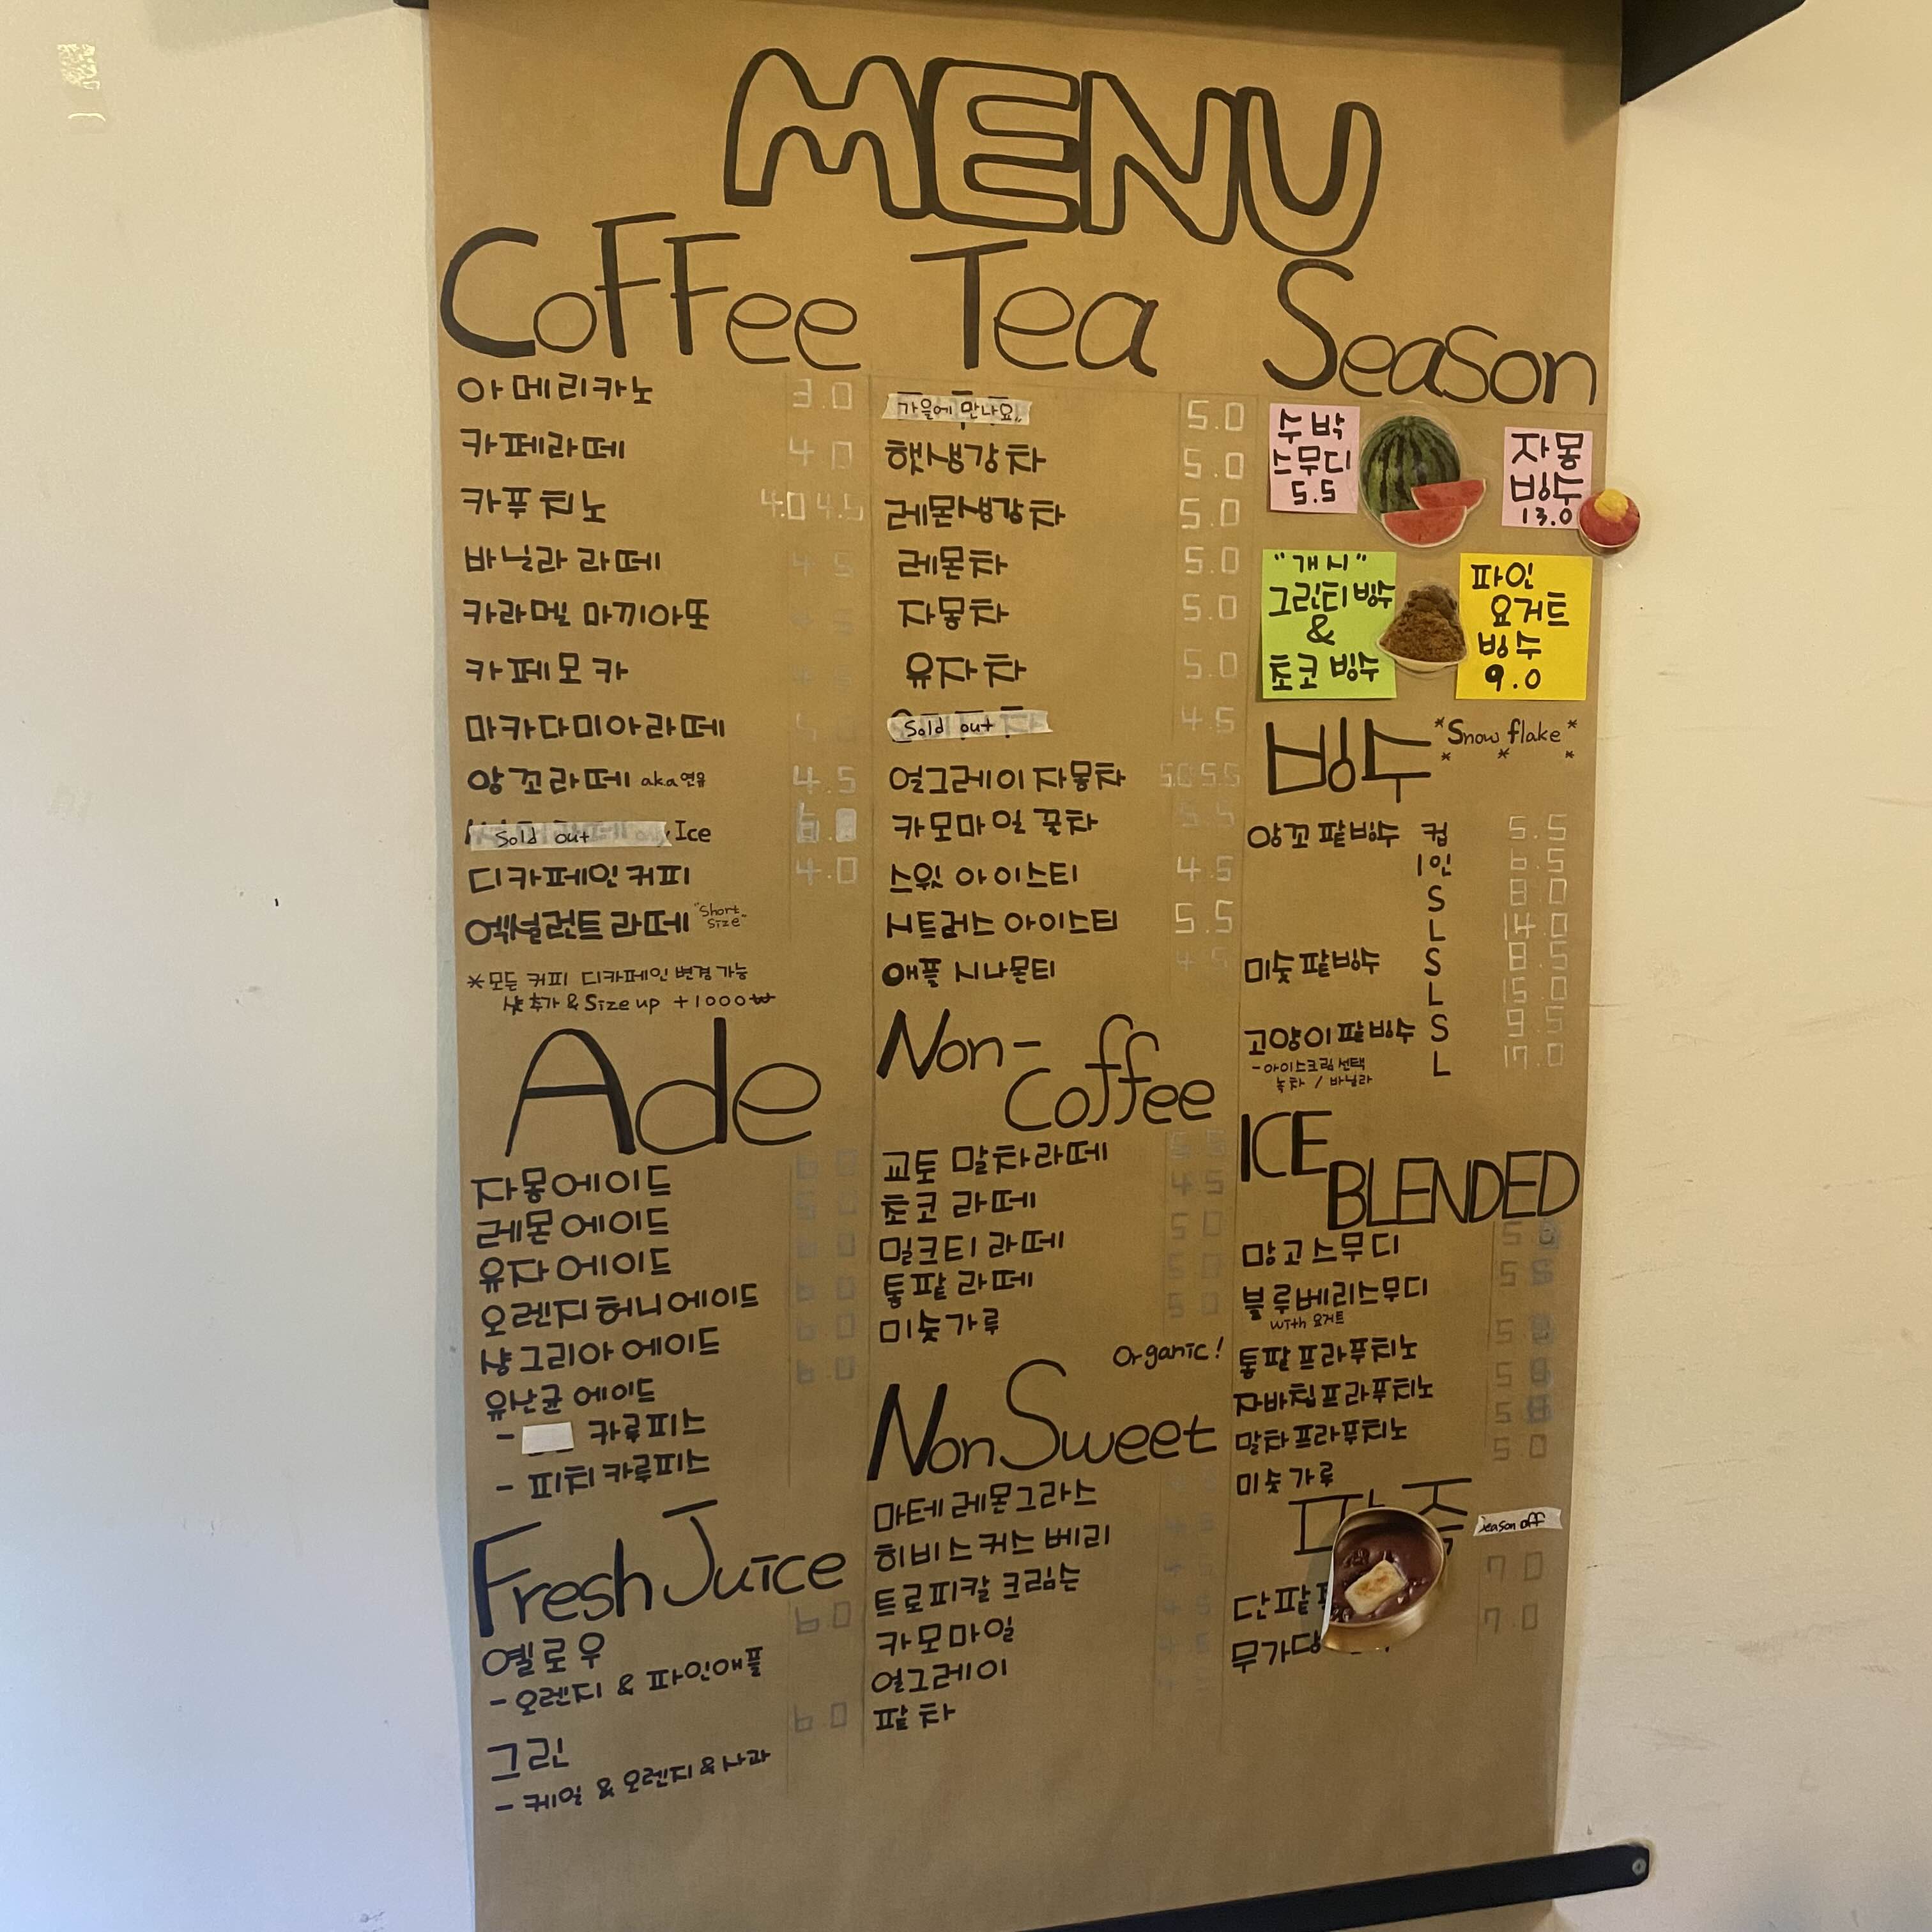 MENU
Coffee
아메리카노 3.0
카페라떼 4.0
카푸치노 4.0 4.5
바닐라 라떼 4 5
카라멜 마끼아또
카페모카
마카다미아라떼
앙꼬라떼 aka 연유 4.5
Sold out Ice
디카페인 커피 4.0
엑설런트 라떼 "Short Size"
*모든 커피 디카페인 변경 가능
샷 추가 & Size up +1000₩
Ade
자몽에이드
레몬에이드
유자에이드 6 0
오렌지 허니에이드 6 0
샹그리아 에이드 6 0
유산균 에이드 6 0
- 카루피스
- 피치카루피스
Fresh Juice
옐로우 6.0
- 오렌지 & 파인애플
그린 6.0
- 케일 & 오렌지 & 사과
Tea
가을에 만나요,, 5.0
햇생강차 5.0
레몬생강차 5.0
레몬차 5.0
자몽차 5.0
유자차 5.0
Sold out 4.5
얼그레이자몽차 5.0 5.5
카모마일 꿀차 5 5
스윗 아이스티 4.5
시트러스 아이스티 5.5
애플 시나몬티 4 5
Non-
coffee
교토 말차라떼 5 5
초코 라떼 4 5
밀크티 라떼 5 0
통팥 라떼 5 0
미숫가루 5 0
Organic!
Non Sweet
마테 레몬그라스
히비스커스 베리
트로피칼 크림슨
카모마일
얼그레이
팥차
Season
수박
스무디
5.5
자몽
빙수
13.0
"개시"
그린티빙수
&
초코빙수
파인
요거트
빙수
9.0
빙수 *Snow flake*
* * *
앙꼬팥빙수 컵 5.5
1인 6.5
S 8.0
L 14.0
미숫팥빙수 S 8.5
L 15.0
고양이팥빙수 S 9.5
L 17.0
-아이스크림 선택
녹차 / 바닐라
ICE
BLENDED
망고스무디
블루베리스무디
with 요거트
통팥프라푸치노
자바칩프라푸치노
말차프라푸치노
미숫가루 5 0
season off
단팥 7 0
무가당 7.0